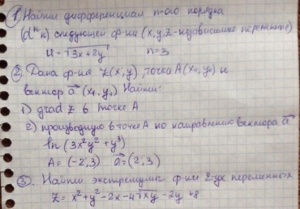 ① Найти дифференциал n-ого порядка
(dⁿu) следующей ф-ии (x, y, z - независимые переменные)
u = √3x+2y n=3
② Дана ф-ия z(x, y), точка A(x₀, y₀) и
вектор a⃗ (x₁, y₁). Найти:
1) grad z в точке A
2) производную в точке A по направлению вектора a⃗
ln (3x²y² + y³)
A = (-2, 3) a⃗ = (2, 3)
③ Найти экстремумы ф-ии 2-ух переменных
z = x² + y² - 2x - 2y + 8